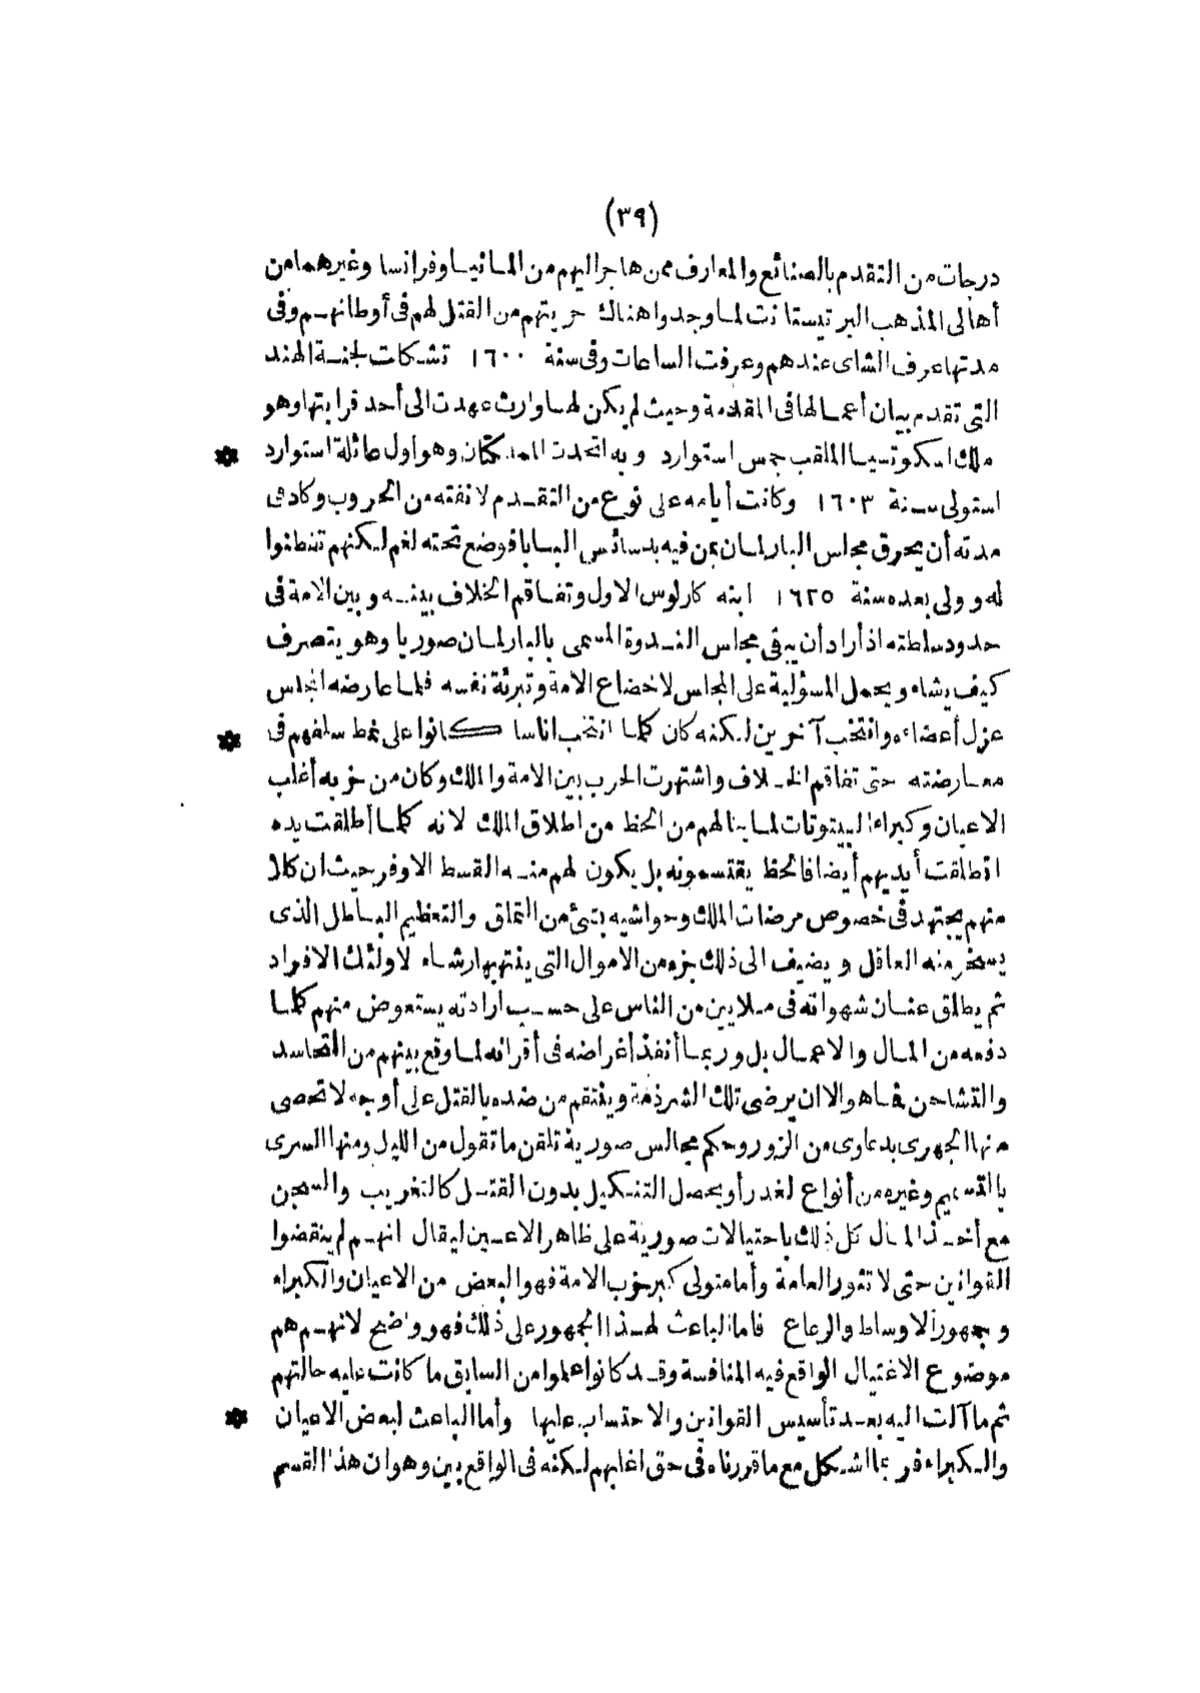 (٣٩)
درجات من التقدم بالصنائع والمعارف ممن هاجر اليهم من المانيا وفرانسا وغيرهما من
أهالى المذهب البرتيستانت لما وجدوا هناك حريتهم من القتل لهم فى أوطانهم وفى
مدتها عرف الشاى عندهم وعرفت الساعات وفى سنة ١٦٠٠ تشكلت لجنة الهند
التى تقدم بيان أعمالها فى المقدمة وحيث لم يكن لها وارث عهدت الى أحد قرابتها وهو
ملك اسكوتسيا الملقب جمس استوارد وبه اتحدت المملكتان وهو اول عائلة استوارد *
استولى سنة ١٦٠٣ وكانت أيامه على نوع من التقدم لانفته من الحروب وكاد فى
مدته أن يحرق مجلس البارلمان بمن فيه بدسائس البابا فوضع تحته لغم لكنهم تفطنوا
له وولى بعده سنة ١٦٢٥ ابنه كارلوس الاول وتفاقم الخلاف بينه وبين الامة فى
حدود سلطته اذ أراد أن يبقى مجلس الندوة المسمى بالبارلمان صوريا وهو يتصرف
كيف يشاء ويحمل المسؤلية على المجلس لاخضاع الامة وتبرئة نفسه فلما عارضه المجلس
عزل أعضاءه وانتخب آخرين لكنه كان كلما انتخب اناسا كانوا على نمط سلفهم فى *
معارضته حتى تفاقم الخلاف واشتهرت الحرب بين الامة والملك وكان من حزبه أغلب
الاعيان وكبراء البيتوتات لما ينالهم من الحظ من اطلاق الملك لانه كلما أطلقت يده
انطلقت أيديهم أيضا فالحظ يقتسمونه بل يكون لهم منه القسط الاوفر حيث ان كلا
منهم يجتهد فى خصوص مرضات الملك وحواشيه بشئ من التملق والتعظيم الباطل الذى
يسخر منه العاقل ويضيف الى ذلك جزء من الاموال التى ينتهبها رشاء لاولئك الافراد
ثم يطلق عنان شهواته فى ملايين من الناس على حسب ارادته يستعوض منهم كلما
دفعه من المال والاعمال بل وربما أنفذ أغراضه فى أقرانه لما وقع بينهم من التحاسد
والتشاحن فما هو الا ان يرضى تلك الشرذمة وينتقم من ضده بالقتل على أوجه لا تحصى
منها الجهرى بدعاوى من الزور وحكم مجالس صورية تلقن ما تقول من الليل ومنها السرى
بالتسميم وغيره من أنواع لغدر أو يحصل التنكيل بدون القتل كالتغريب والسجن
مع أخذ المال كل ذلك باحتيالات صورية على ظاهر الاعين ليقال انهم لم ينقضوا
القوانين حتى لا تثور العامة وأما متولى كبر حزب الامة فهو البعض من الاعيان والكبراء
وجمهور الاوساط والرعاع فاما الباعث لهذا الجمهور على ذلك فهو واضح لانهم هم
موضوع الاغتيال الواقع فيه المنافسة وقد كانوا علموا من السابق ما كانت عليه حالتهم
ثم ما آلت اليه بعد تأسيس القوانين والاحتساب عليها وأما الباعث لبعض الاعيان *
والكبراء فربما اشكل مع ما قررناه فى حق اغلبهم لكنه فى الواقع بين وهو ان هذا القسم